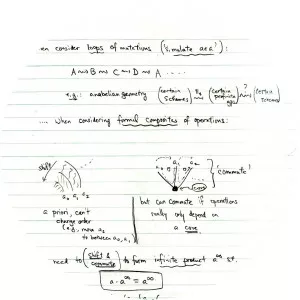 consider loops of mutations ('simulate as a'):
A ~> B ~> C ~> D ~> A .....
e.g.: anabelian geometry (certain schemes) (certain profinite gps) (certain schemes)
.... When considering formal composites of operations:
shift
a₀ a₁ a₂
core
'commute'
a priori, can't
change order
(e.g., move a₂
to between a₀, a₁)
but can commute if operations
really only depend on
a core
need to (shift & commute) to form infinite product a^∞ st.
a · a^∞ = a^∞